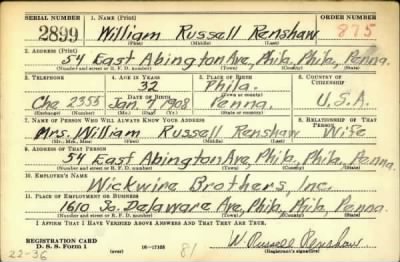 SERIAL NUMBER 1. NAME (Print) ORDER NUMBER
2899 William Russell Renshaw 875
(First) (Middle) (Last)
2. ADDRESS (Print)
54 East Abington Ave, Phila, Phila, Penna.
(Number and street or R. F. D. number) (Town) (County) (State)
3. TELEPHONE 4. AGE IN YEARS 5. PLACE OF BIRTH 6. COUNTRY OF CITIZENSHIP
32 Phila.
DATE OF BIRTH (Town or county)
Che 2355 Jan. 7 1908 Penna. U.S.A.
(Exchange) (Number) (Mo.) (Day) (Yr.) (State or country)
7. NAME OF PERSON WHO WILL ALWAYS KNOW YOUR ADDRESS 8. RELATIONSHIP OF THAT PERSON
Mrs. William Russell Renshaw Wife
(Mr., Mrs., Miss) (First) (Middle) (Last)
9. ADDRESS OF THAT PERSON
54 East Abington Ave, Phila, Phila. Penna.
(Number and street or R. F. D. number) (Town) (County) (State)
10. EMPLOYER'S NAME
Wickwire Brothers, Inc.
11. PLACE OF EMPLOYMENT OR BUSINESS
1610 So. Delaware Ave, Phila, Phila, Penna.
(Number and street or R. F. D. number) (Town) (County) (State)
I AFFIRM THAT I HAVE VERIFIED ABOVE ANSWERS AND THAT THEY ARE TRUE.
REGISTRATION CARD W Russell Renshaw
D. S. S. Form 1 (over) 16-17105 (Registrant's signature)
22-36 81